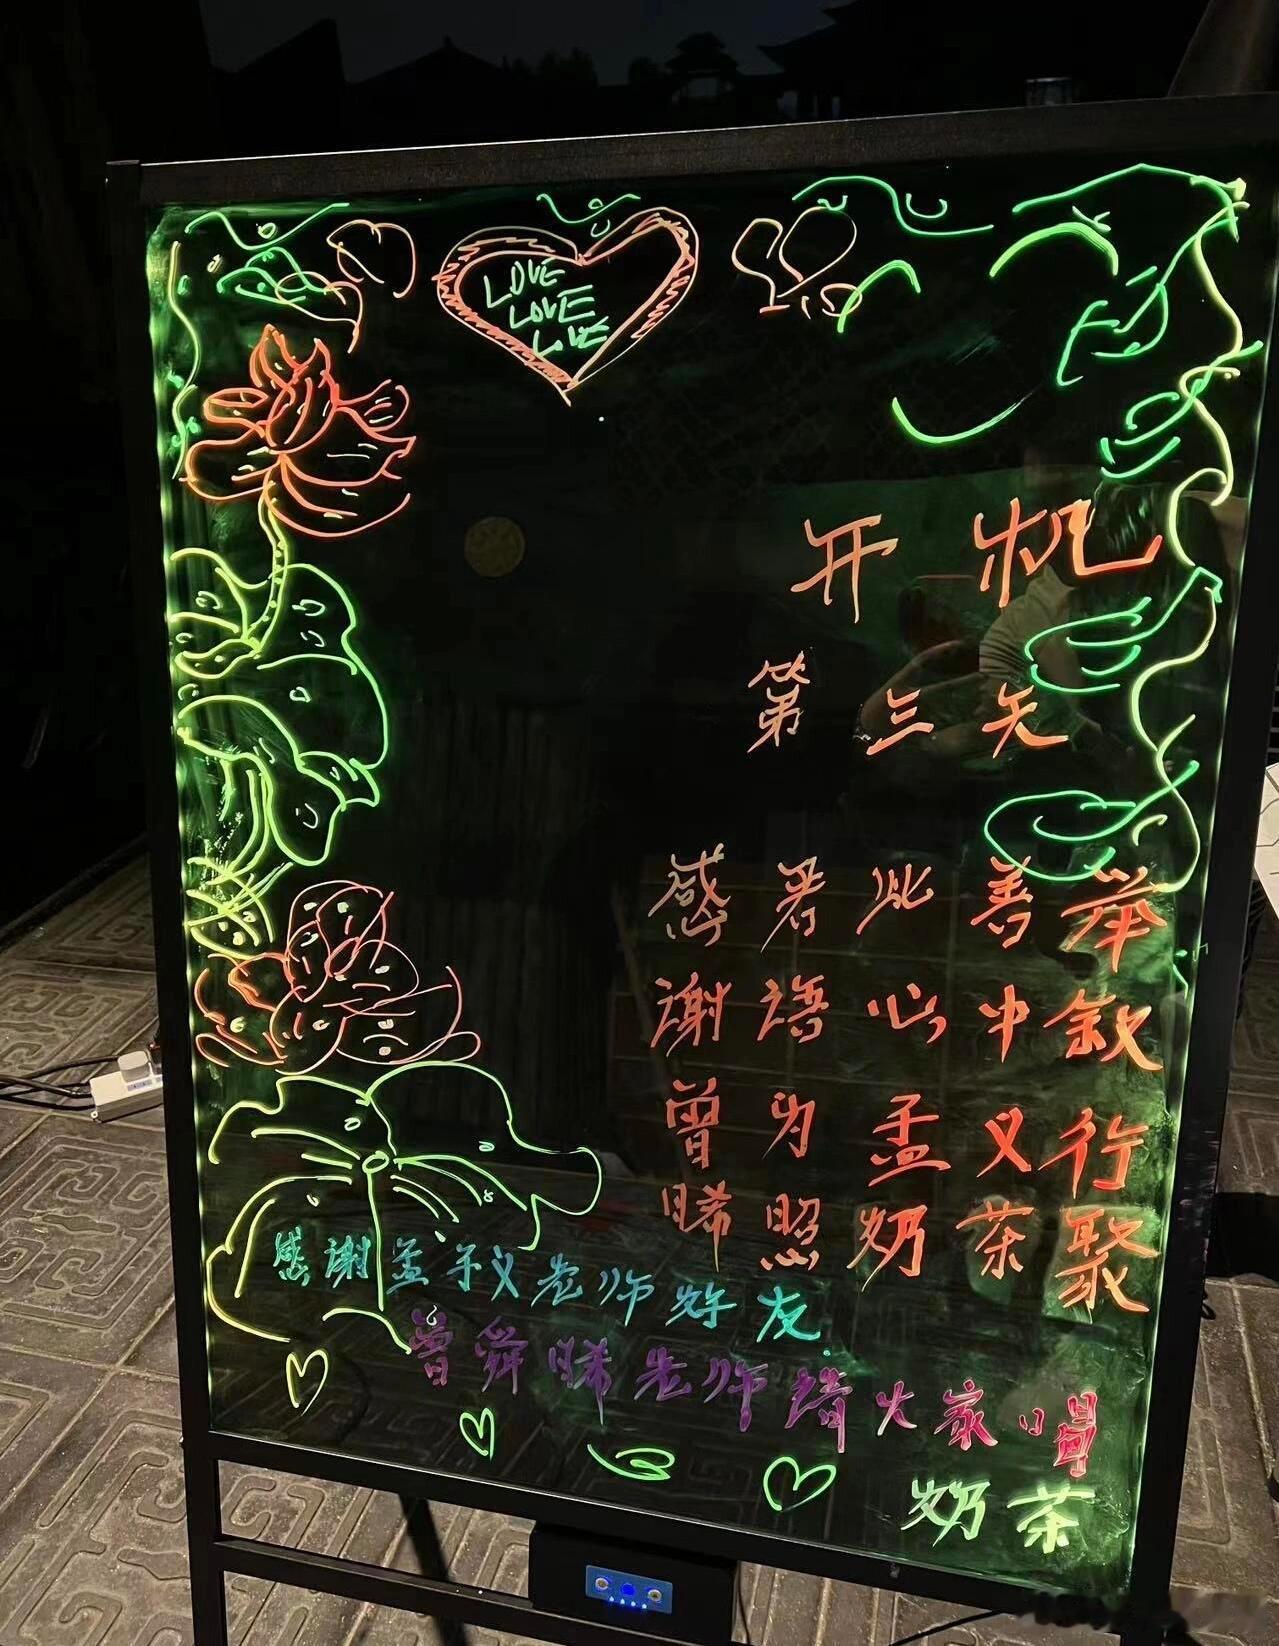 LOVE
LOVE
LOVE
开机
第三天
感君此善举
谢语心中叙
曾为孟义行
晞照奶茶聚
感谢孟子义老师好友
曾舜晞老师请大家喝
奶茶